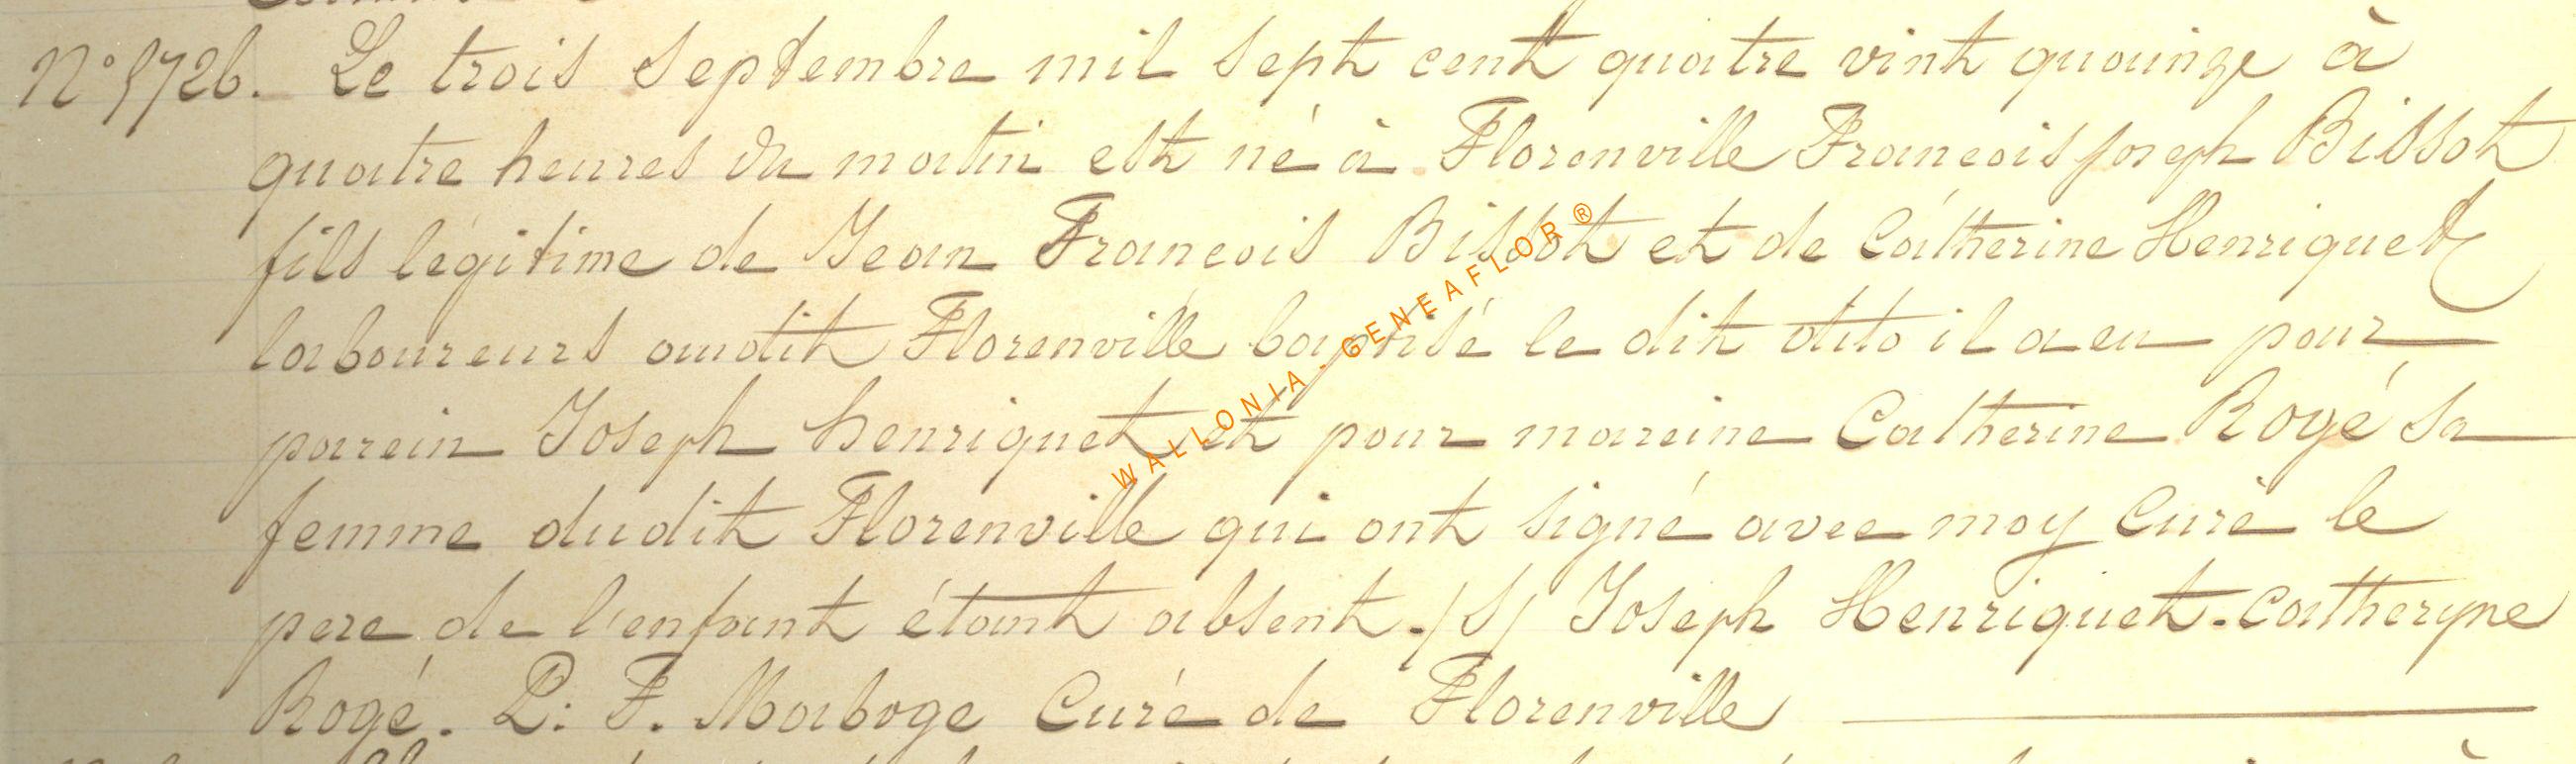 N° 5726. Le trois septembre mil sept cent quatre vint quainze à
quatre heures du matin est né à Florenville Francois joseph Bissot
fils légitime de Jean Francois Bissot et de Catherine Henriquet
laboureurs audit Florenville baptisé le dit dito il a eu pour
parein Joseph henriquet et pour mareine Catherine Rogé sa
femme dudit Florenville qui ont signé avec moy Curé le
pere de l'enfant étant absent. /S/ Joseph Henriquet. catheryne
Rogé. P: F. Maboge Curé de Florenville
WALLONIA - GENEAFLOR ®